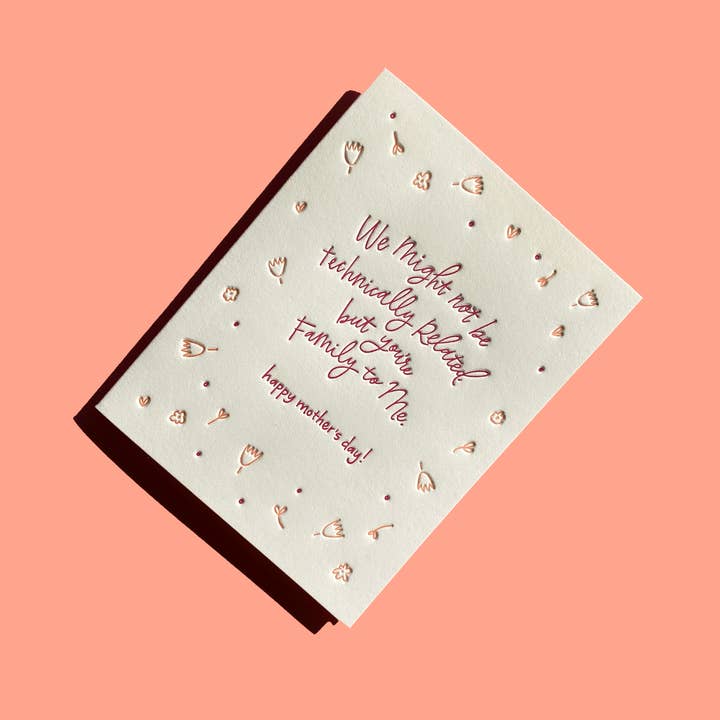 We Might not be
technically Related
but you're
Family to Me.
happy mother's day!